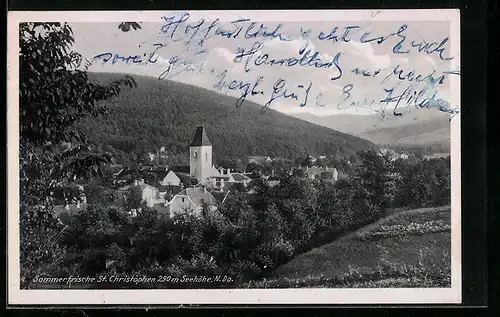 Hoffentlich geht es Euch
soweit gut
herzl. Grüße Eure Hilde
Sommerfrische St. Christophen 290 m Seehöhe, N.Do.